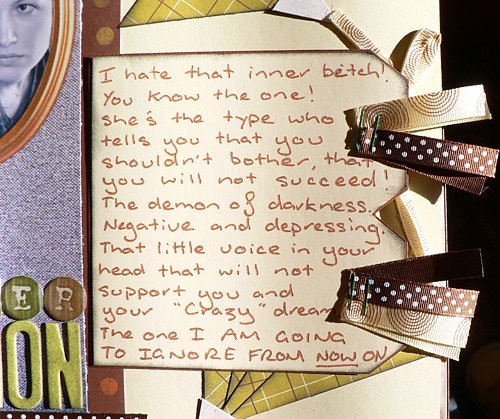 I hate that inner beitch!
You know the one!
She's the type who
tells you that you
shouldn't bother, that
you will not succeed!
The demon of darkness.
Negative and depressing.
That little voice in your
head that will not
support you and
your "Crazy" dream
The one I AM GOING
TO IGNORE FROM NOW ON
ER
ON